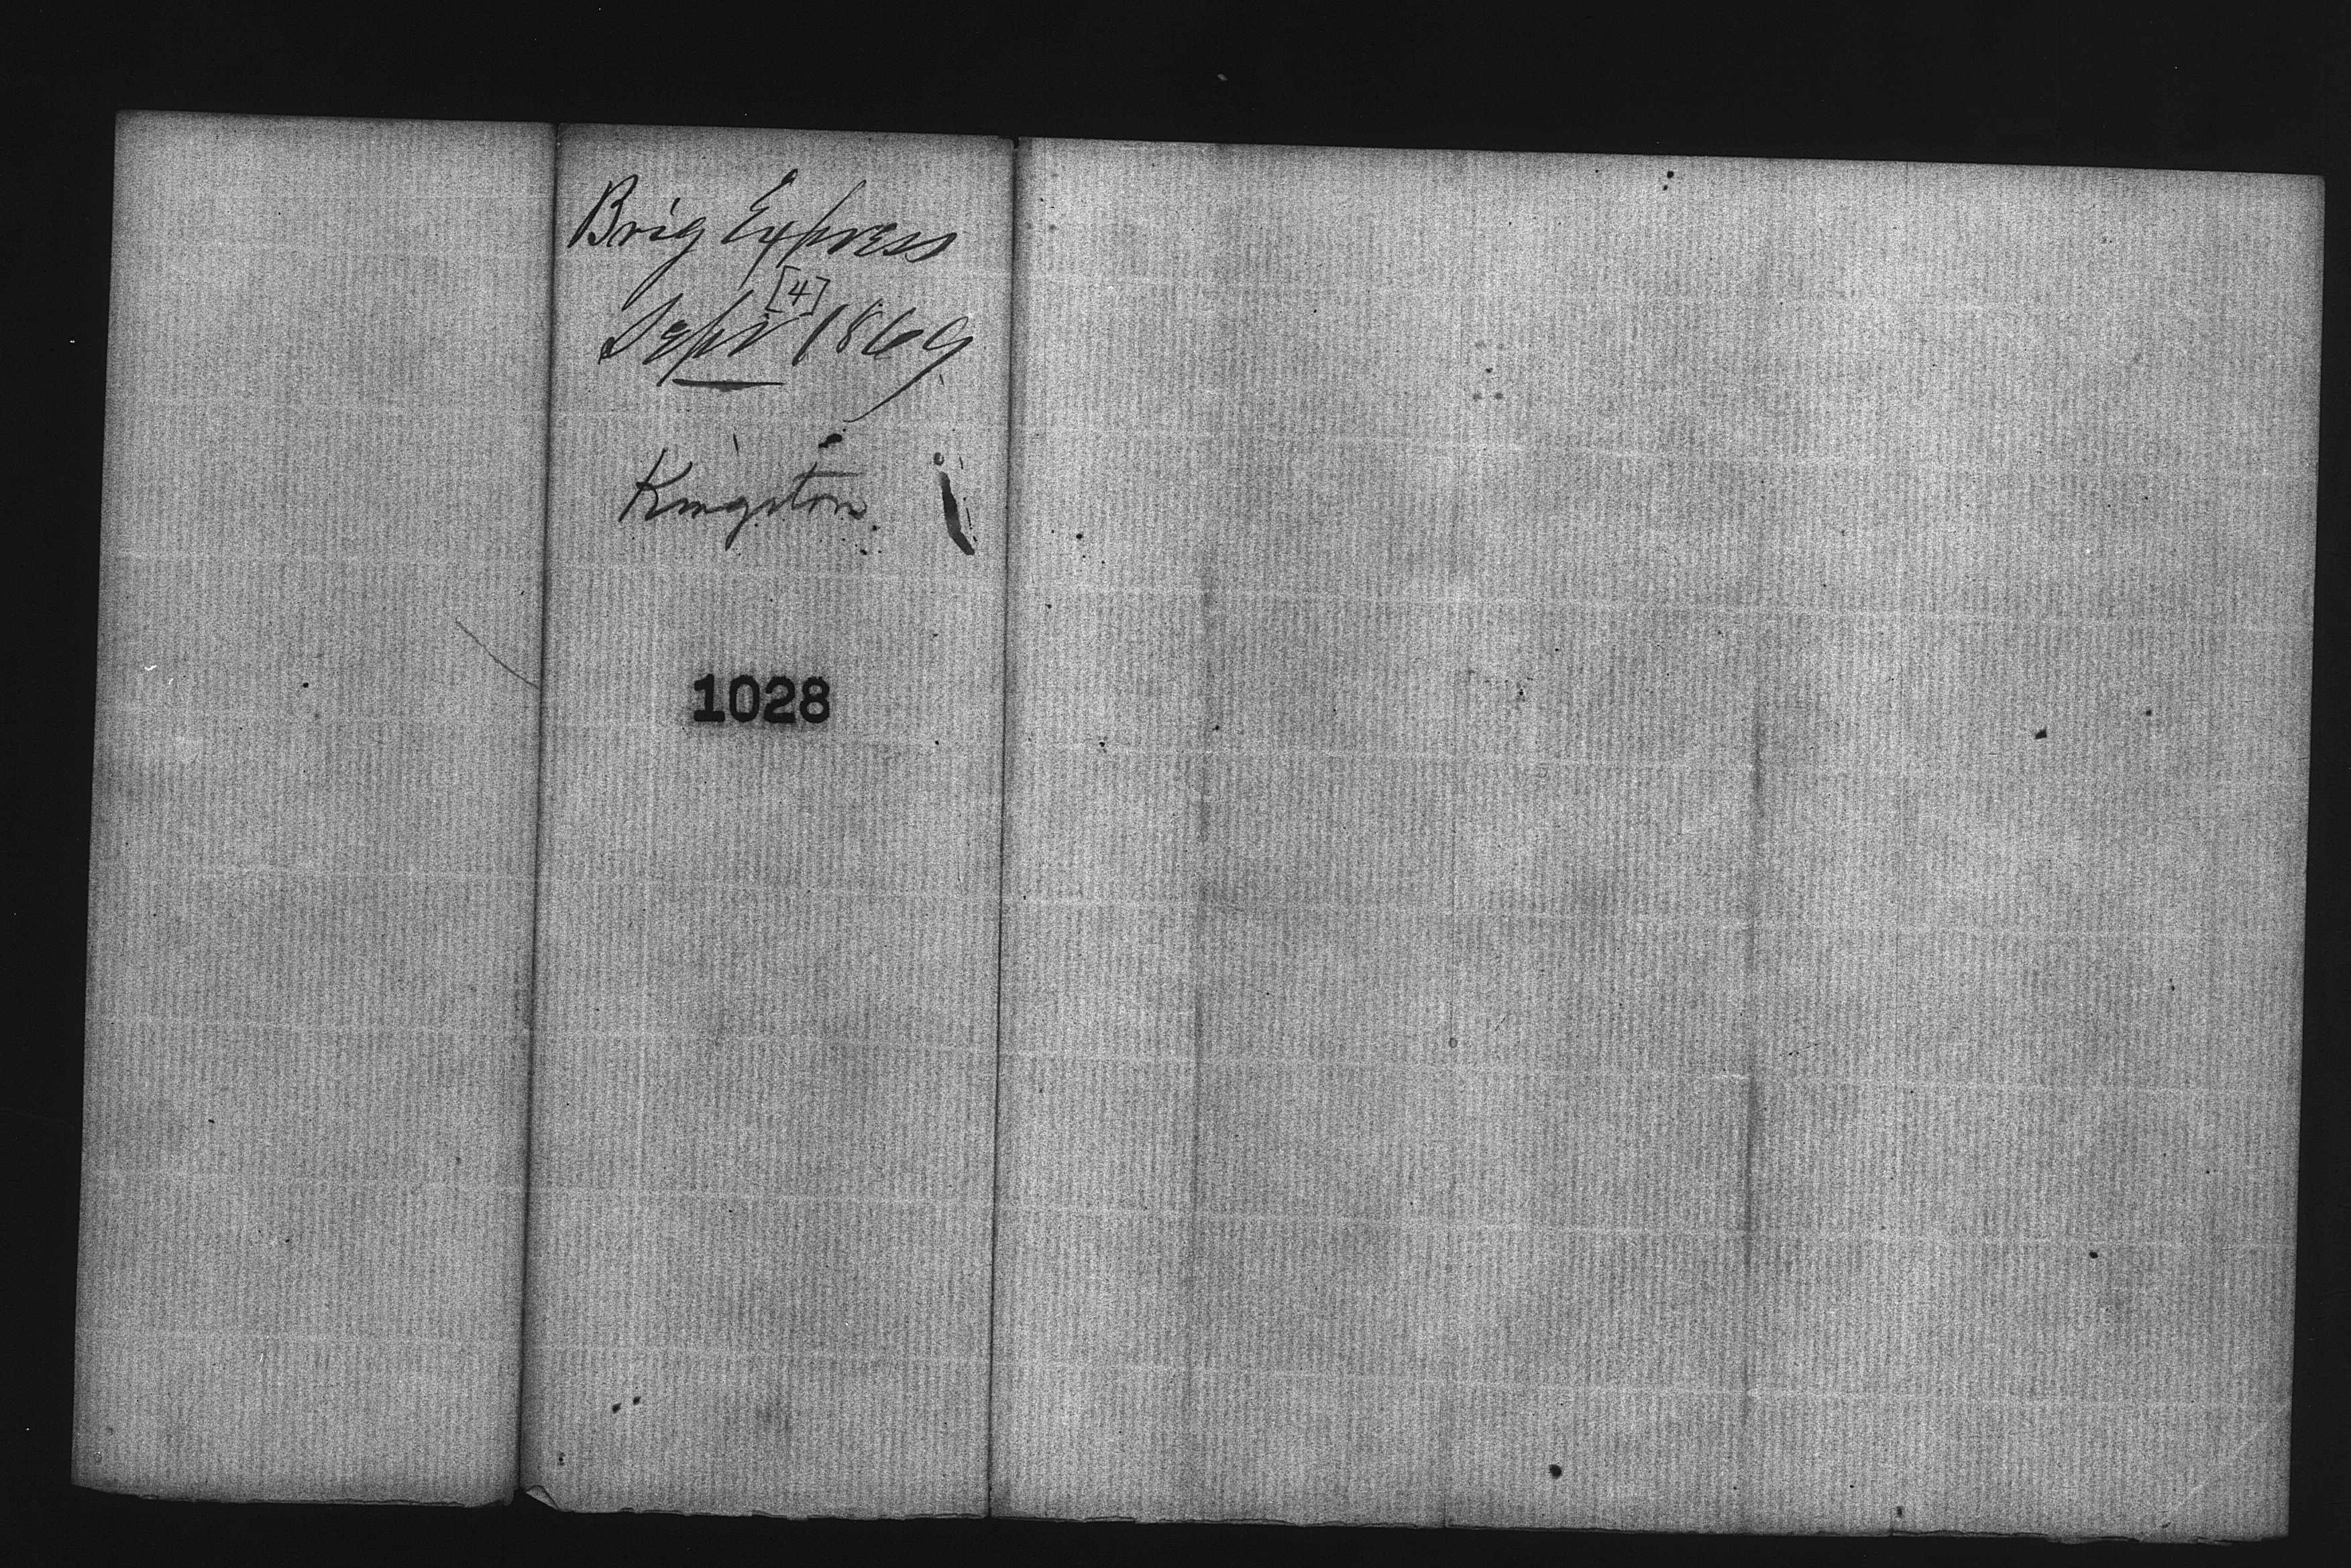 Brig Express
[4]
Sept 1869
Kingston
1028